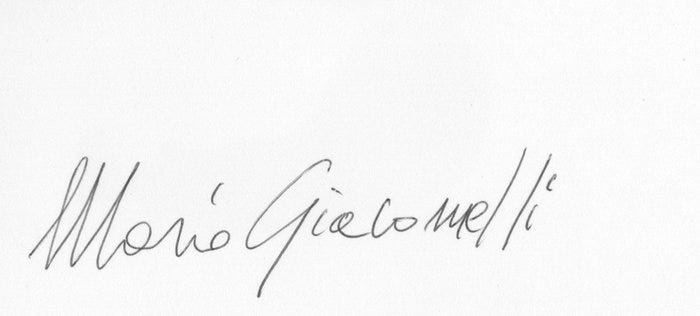 Mario Giacomelli